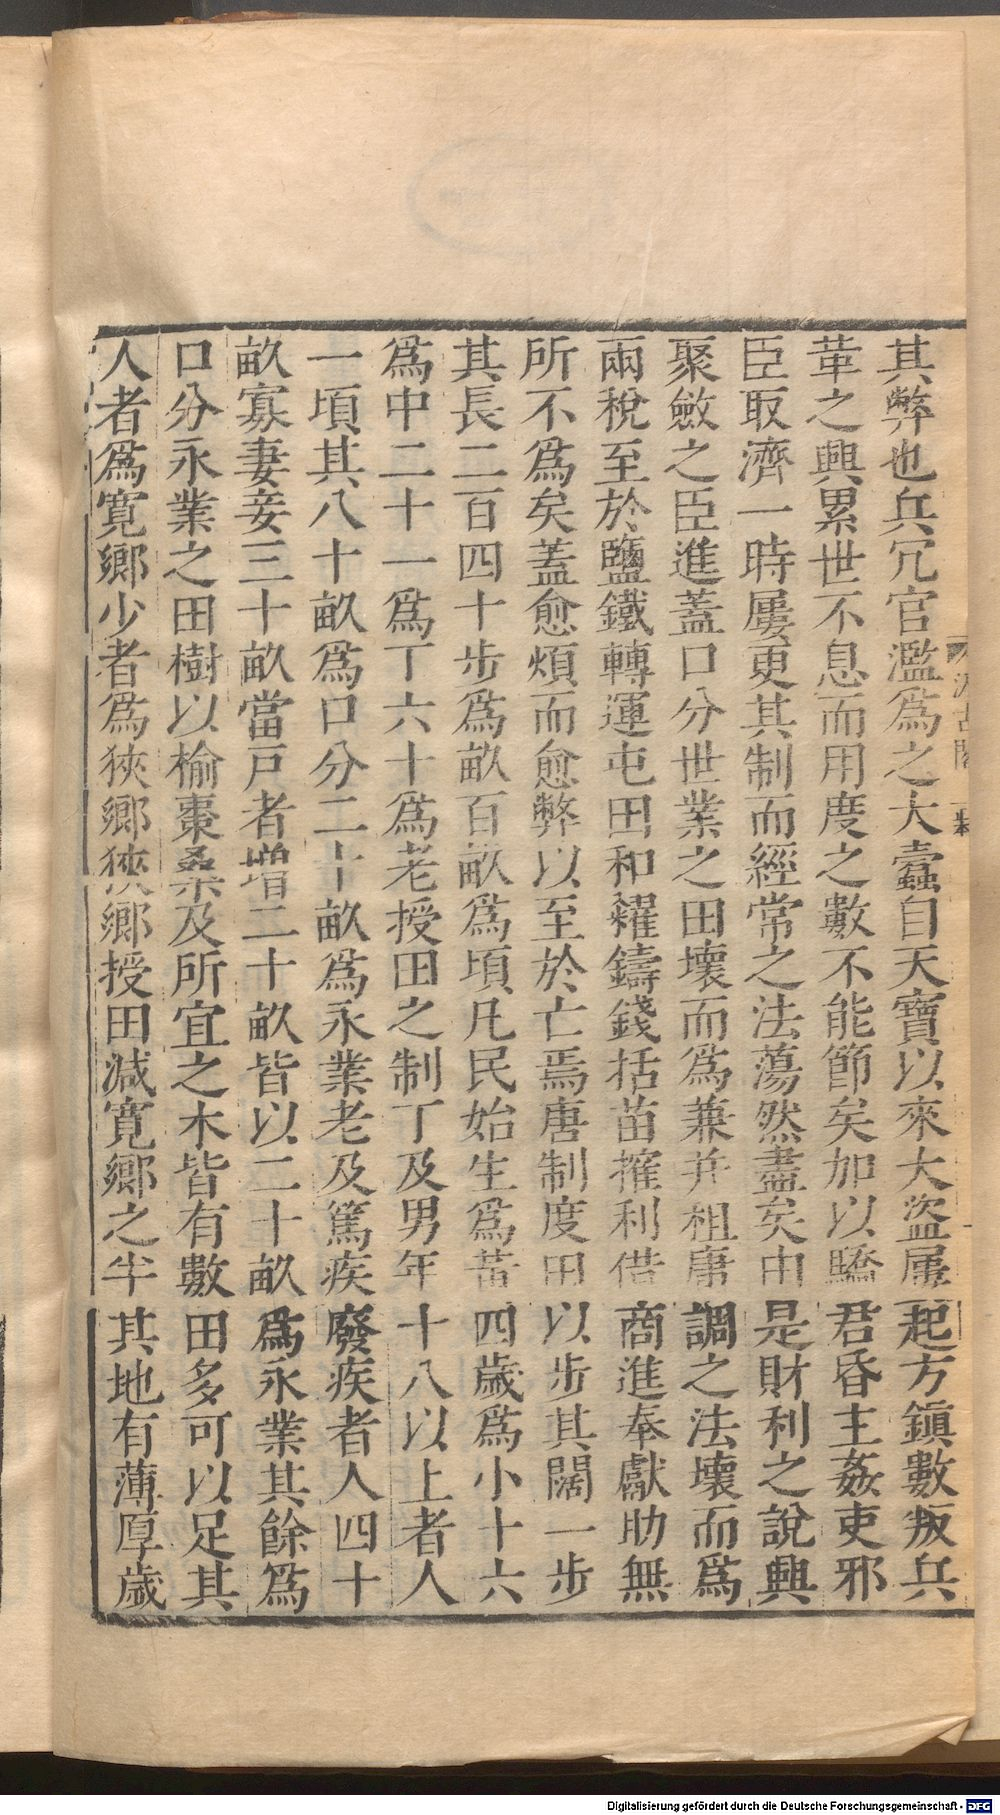 其弊也兵冗官濫爲之大蠹自天寶以來大盜屢起方鎭數叛兵
革之興累世不息而用度之數不能節矣加以驕君昏主姦吏邪
臣取濟一時屢更其制而經常之法蕩然盡矣由是財利之說興
聚斂之臣進蓋口分世業之田壞而爲兼并租庸調之法壞而爲
兩稅至於鹽鐵轉運屯田和糴鑄錢括苗搉利借商進奉獻助無
所不爲矣蓋愈煩而愈弊以至於亡焉唐制度田以步其闊一步
其長二百四十步爲畝百畝爲頃凡民始生爲黃四歲爲小十六
爲中二十一爲丁六十爲老授田之制丁及男年十八以上者人
一頃其八十畝爲口分二十畝爲永業老及篤疾廢疾者人四十
畝寡妻妾三十畝當戸者增二十畝皆以二十畝爲永業其餘爲
口分永業之田樹以榆棗桑及所宜之木皆有數田多可以足其
人者爲寬鄉少者爲狹鄉狹鄉授田減寬鄉之半其地有薄厚歲
Digitalisierung gefördert durch die Deutsche Forschungsgemeinschaft - DFG